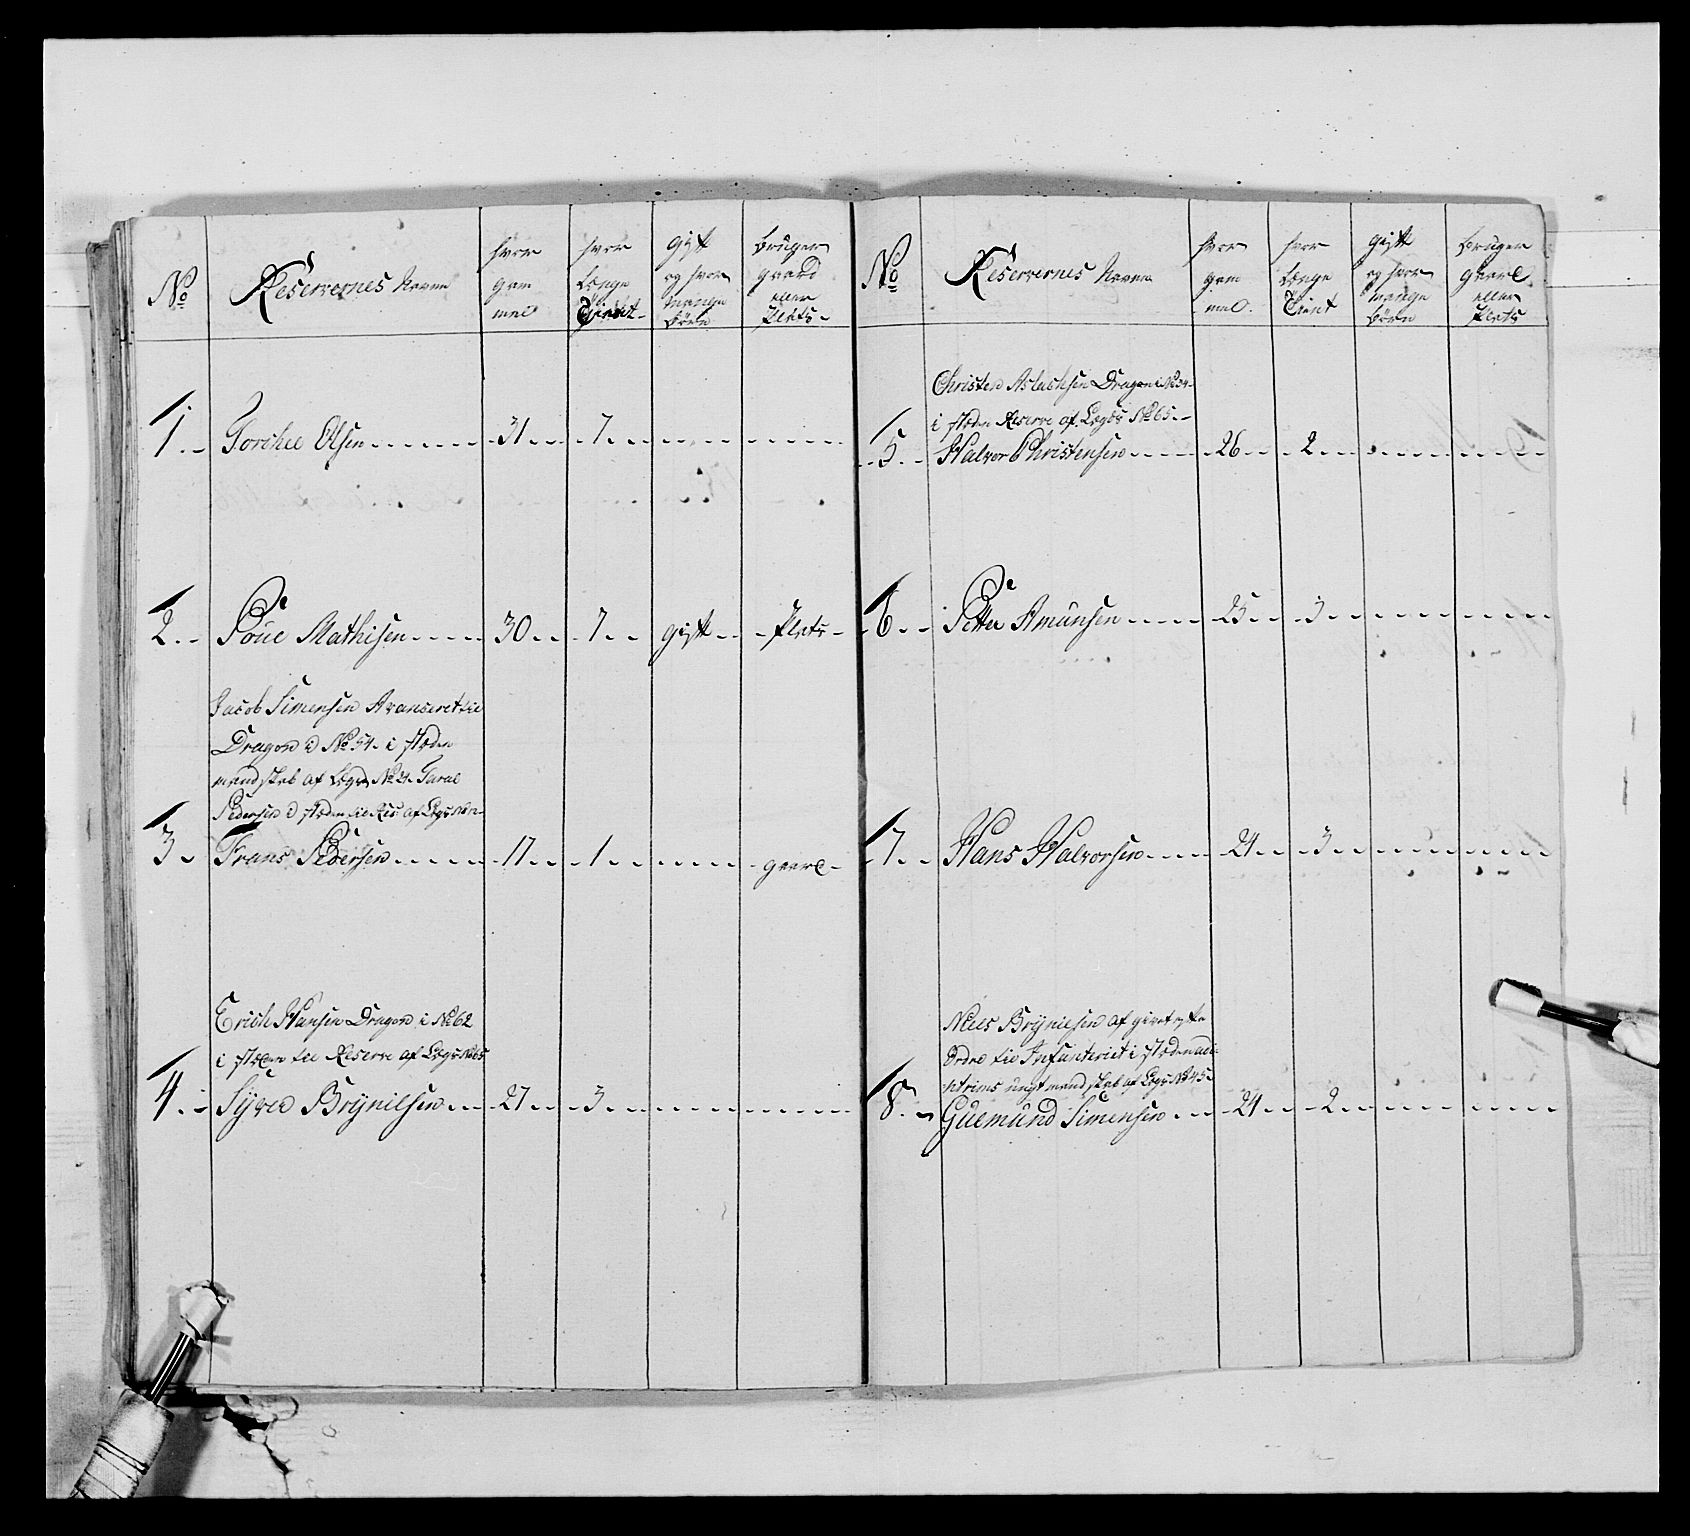 No
Reservernes Navne
hvor gam mel
hvor Længe Tient
gift og hvor mange børn
bruger gaard eller Plats
1. Torchel Olsen 31 7
2. Poul Mathisen 30 7 gift Plats
Jacob Simensen Avanceret til
Dragon i No 54. i stæden
mandskab af Lægd No 21. Taral
Pedersen i stæden til Res af Lægs No
3. Frans Pedersen 17 1 gaard
Erich Hansen Dragon i No 62
i stæden til Reserve af Lægs No 65
4. Syver Brynilsen 27 3
No
Reservernes Navne
hvor gam mel.
hvor Længe Tient
gift og hvor mange børn
bruger gaard eller Plats
Christen Aslachsen Dragon i No 34
i stæden Reserve af Lægds No 65
5. Halvor Christensen 26 2
6. Petter Amunsen 25 3
7. Hans Halvorsen 24 3
Niels Brynilsen af givet efter
Ordre til Infanteriet i stæden
ungt mandskab af Lægs No 45
8. Gulmund Simensen 24 2